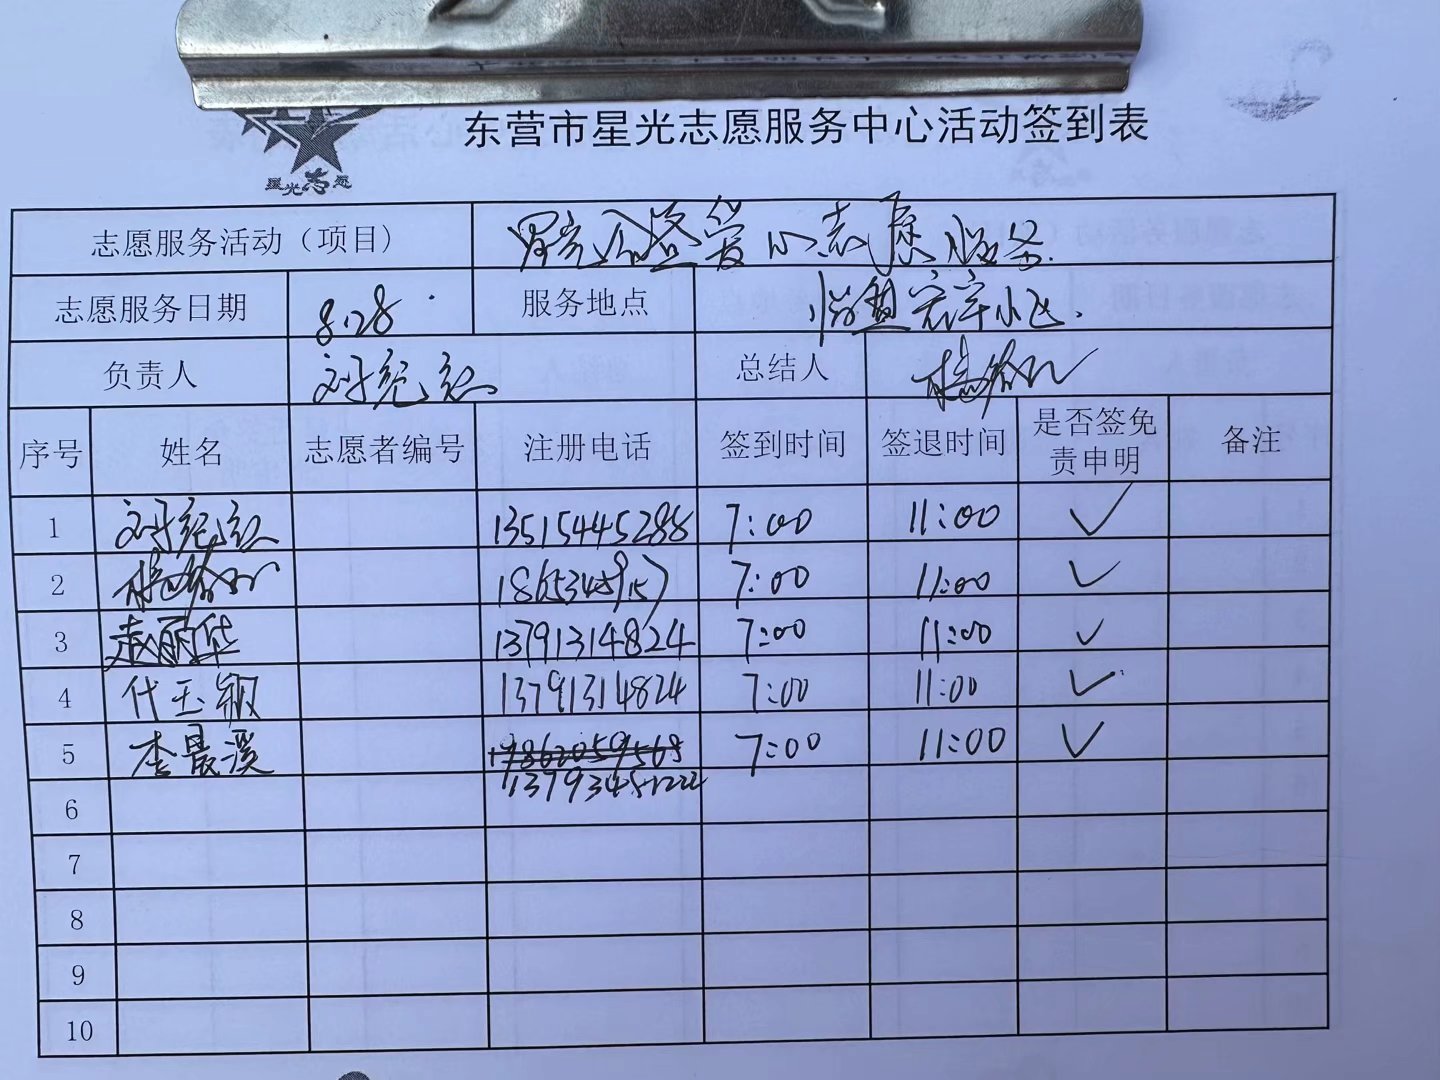 东营市星光志愿服务中心活动签到表
星光志愿
志愿服务活动（项目） 爱心志愿服务
志愿服务日期 8.28 服务地点
负责人 总结人
序号 姓名 志愿者编号 注册电话 签到时间 签退时间 是否签免责申明 备注
1 13515445288 7:00 11:00 ✓
2 7:00 11:00 ✓
3 赵丽华 13791314824 7:00 11:00 ✓
4 代玉 13791314824 7:00 11:00 ✓
5 李晨溪 7:00 11:00 ✓
13793451222
6
7
8
9
10